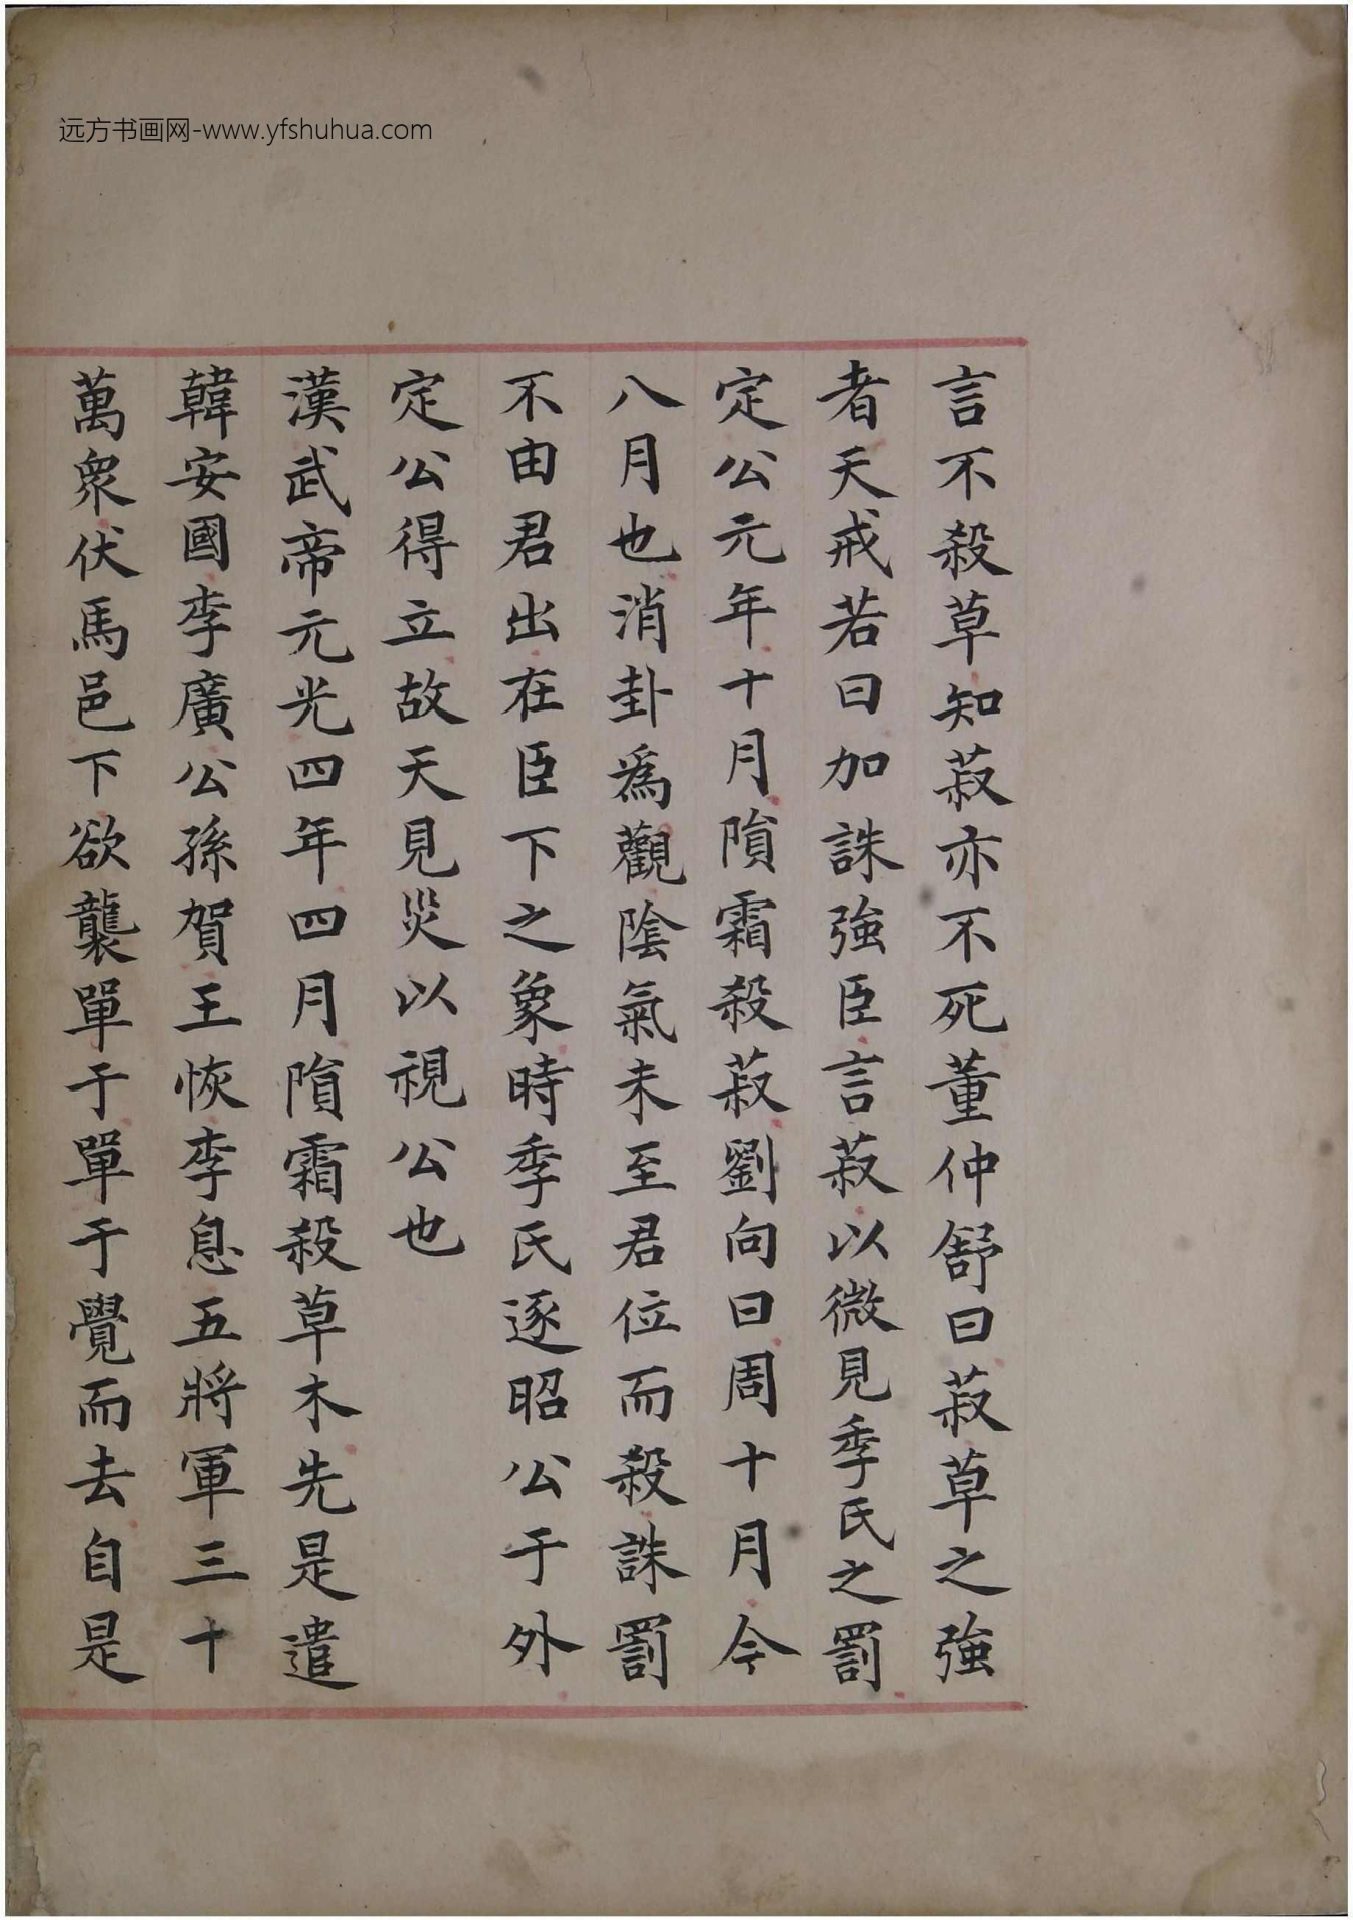 远方书画网-www.yfshuhua.com
言不殺草知菽亦不死董仲舒曰菽草之強
者天戒若曰加誅強臣言菽以微見季氏之罰
定公元年十月隕霜殺菽劉向曰周十月今
八月也消卦爲觀陰氣未至君位而殺誅罰
不由君出在臣下之象時季氏逐昭公于外
定公得立故天見災以視公也
漢武帝元光四年四月隕霜殺草木先是遣
韓安國李廣公孫賀王恢李息五將軍三十
萬衆伏馬邑下欲襲單于單于覺而去自是